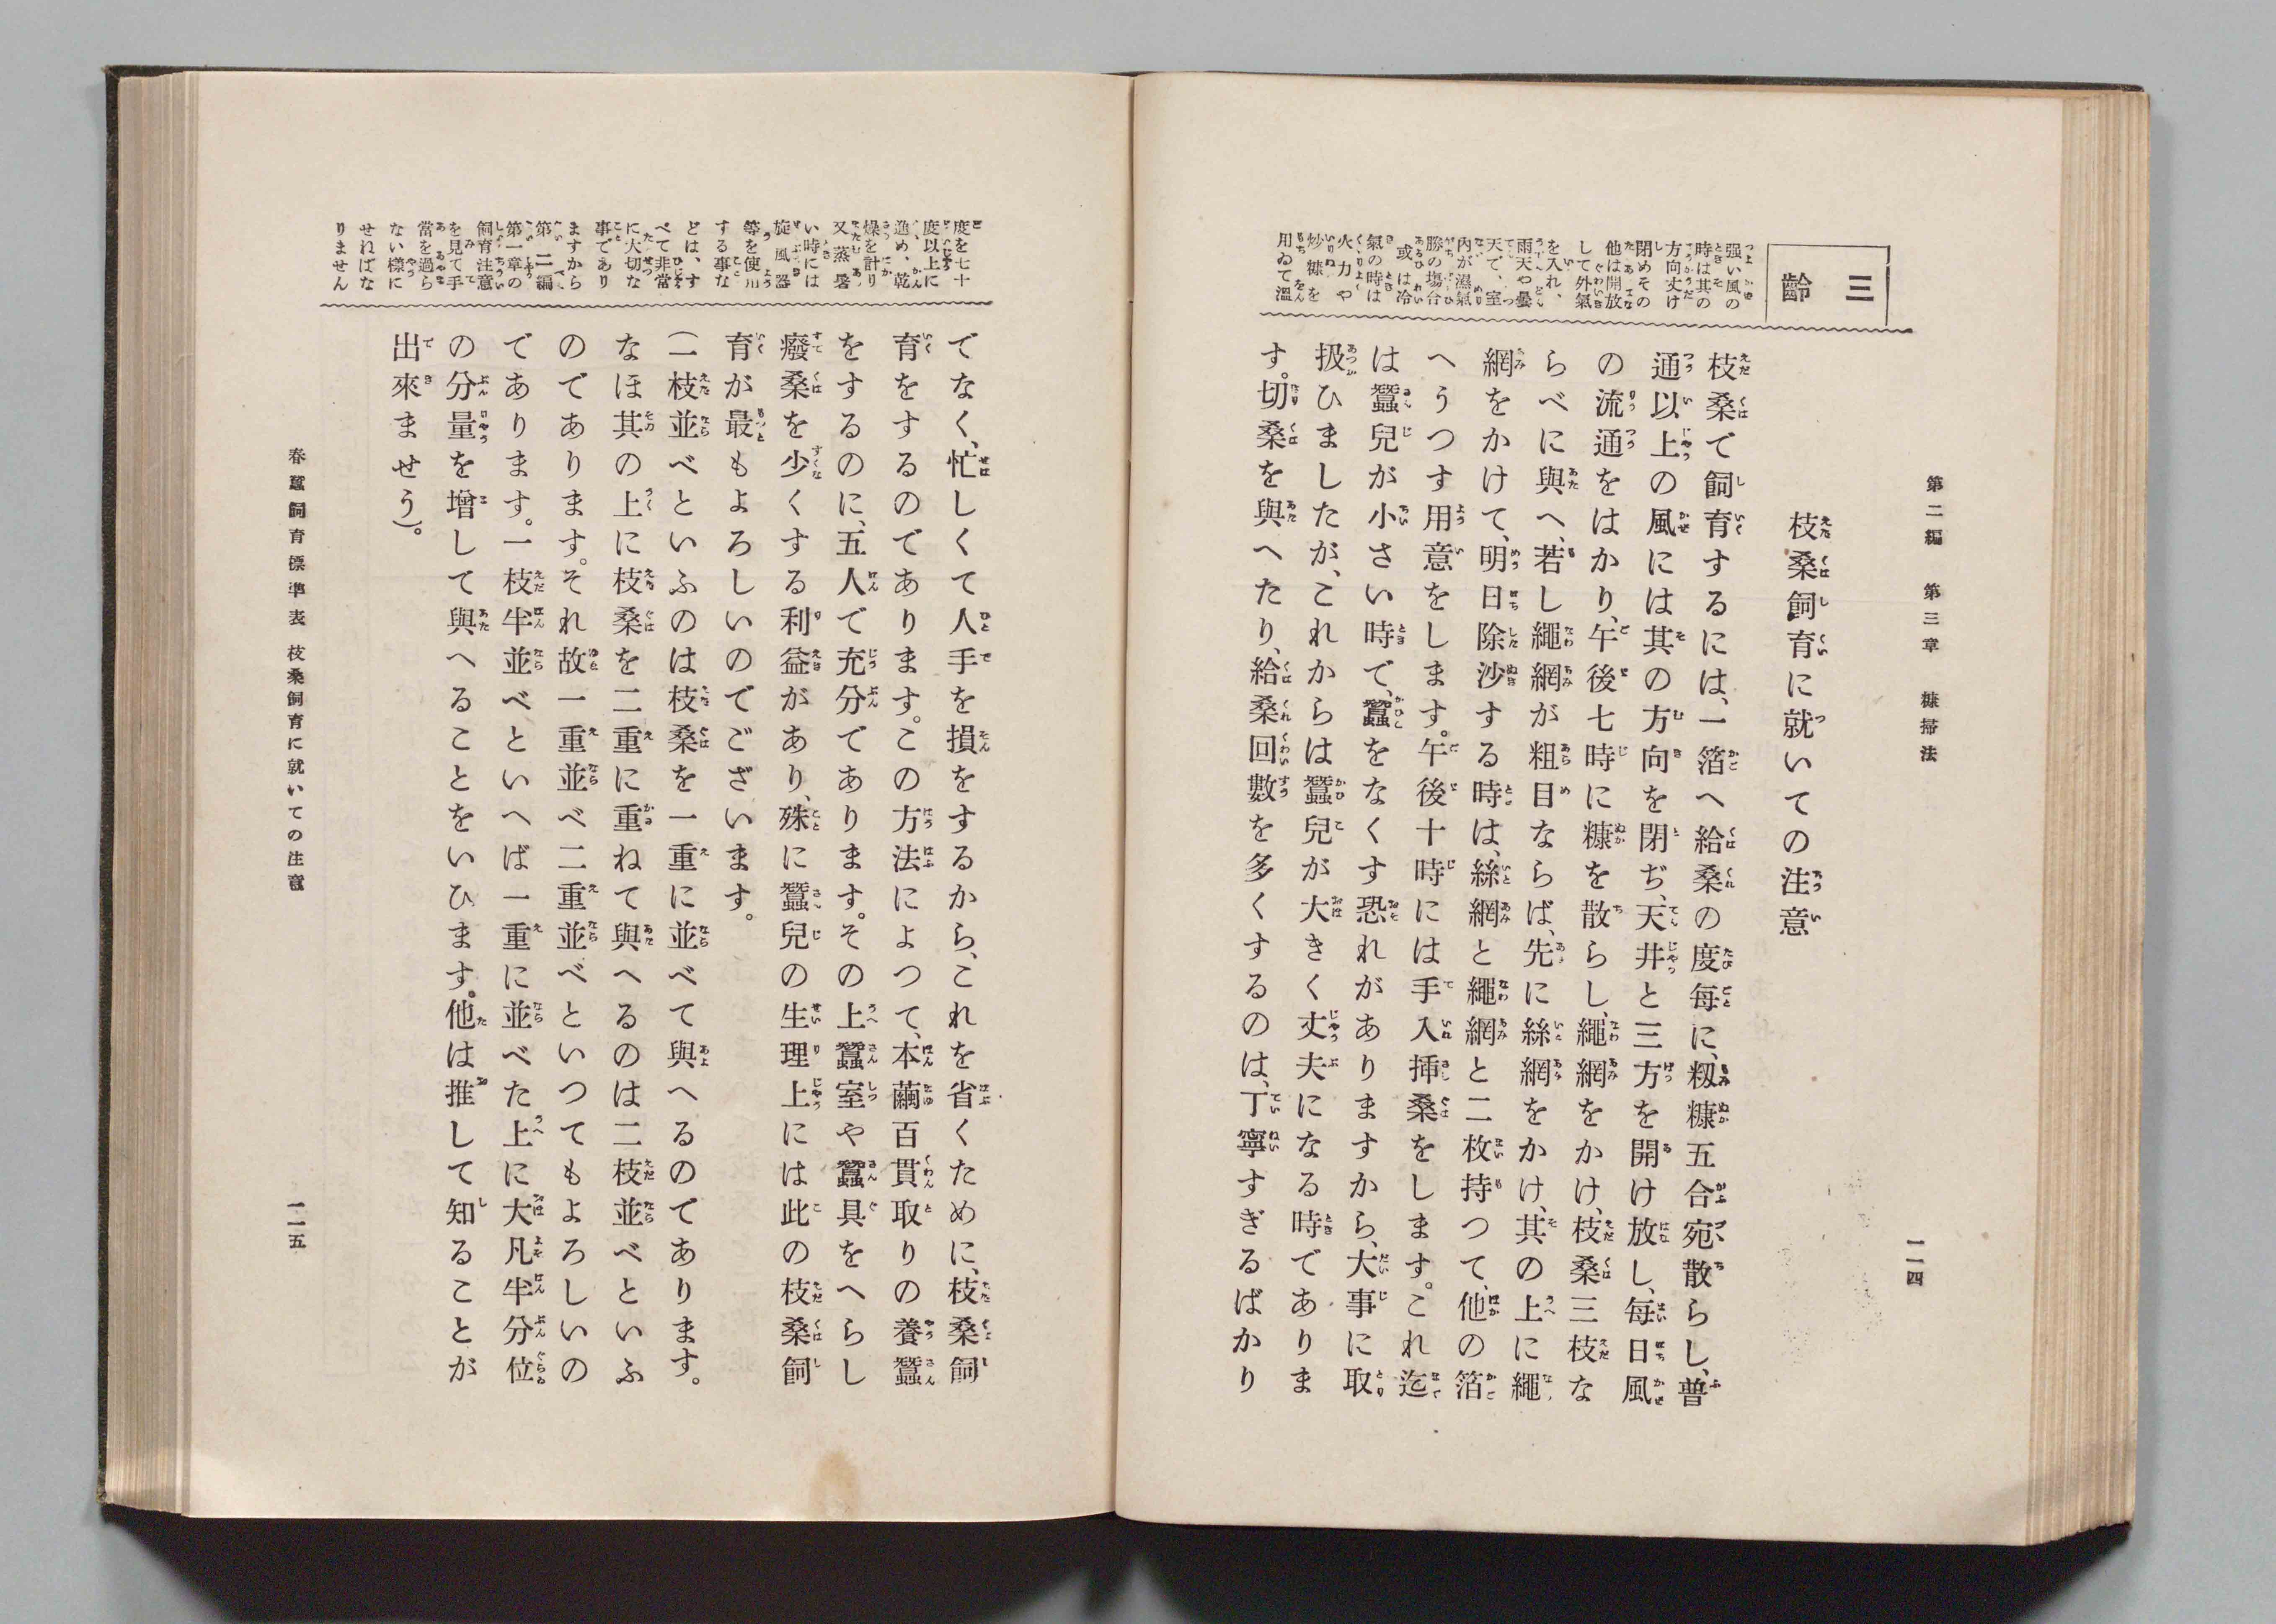 第二編　第三章　糠掃法
一一四
三齡
强い風の
時は其の
方向丈け
閉めその
他は開放
して外氣
を入れ、
雨天や曇
天で、室
內が濕氣
勝の塲合
或は冷
氣の時は
火力や
炒糠を
用ゐて溫
枝桑飼育に就いての注意
枝桑で飼育するには、一箔へ給桑の度每に、籾糠五合宛散らし、普
通以上の風には其の方向を閉ぢ、天井と三方を開け放し、每日風
の流通をはかり、午後七時に糠を散らし、繩網をかけ、枝桑三枝な
らべに與へ、若し繩網が粗目ならば、先に絲網をかけ、其の上に繩
網をかけて、明日除沙する時は、絲網と繩網と二枚持つて、他の箔
へうつす用意をします。午後十時には手入挿桑をします。これ迄
は蠶兒が小さい時で、蠶をなくす恐れがありますから、大事に取
扱ひましたが、これからは蠶兒が大きく丈夫になる時でありま
す。切桑を與へたり、給桑回數を多くするのは、丁寧すぎるばかり
度を七十
度以上に
進め、乾
燥を計り
又蒸暑
い時には
旋風器
等を使用
する事な
どは、す
べて非常
に大切な
事であり
ますから
第二編
第一章の
飼育注意
を見て手
當を過ら
ない樣に
せればな
りません
でなく、忙しくて人手を損をするから、これを省くために、枝桑飼
育をするのであります。この方法によつて、本繭百貫取りの養蠶
をするのに、五人で充分であります。その上蠶室や蠶具をへらし
癈桑を少くする利益があり、殊に蠶兒の生理上には此の枝桑飼
育が最もよろしいのでございます。
(一枝並べといふのは枝桑を一重に並べて與へるのであります。
なほ其の上に枝桑を二重に重ねて與へるのは二枝並べといふ
のであります。それ故一重並べ二重並べといつてもよろしいの
であります。一枝半並べといへば一重に並べた上に大凡半分位
の分量を增して與へることをいひます。他は推して知ることが
出來ませう)。
春蠶飼育標準表　枝桑飼育に就いての注意
一一五